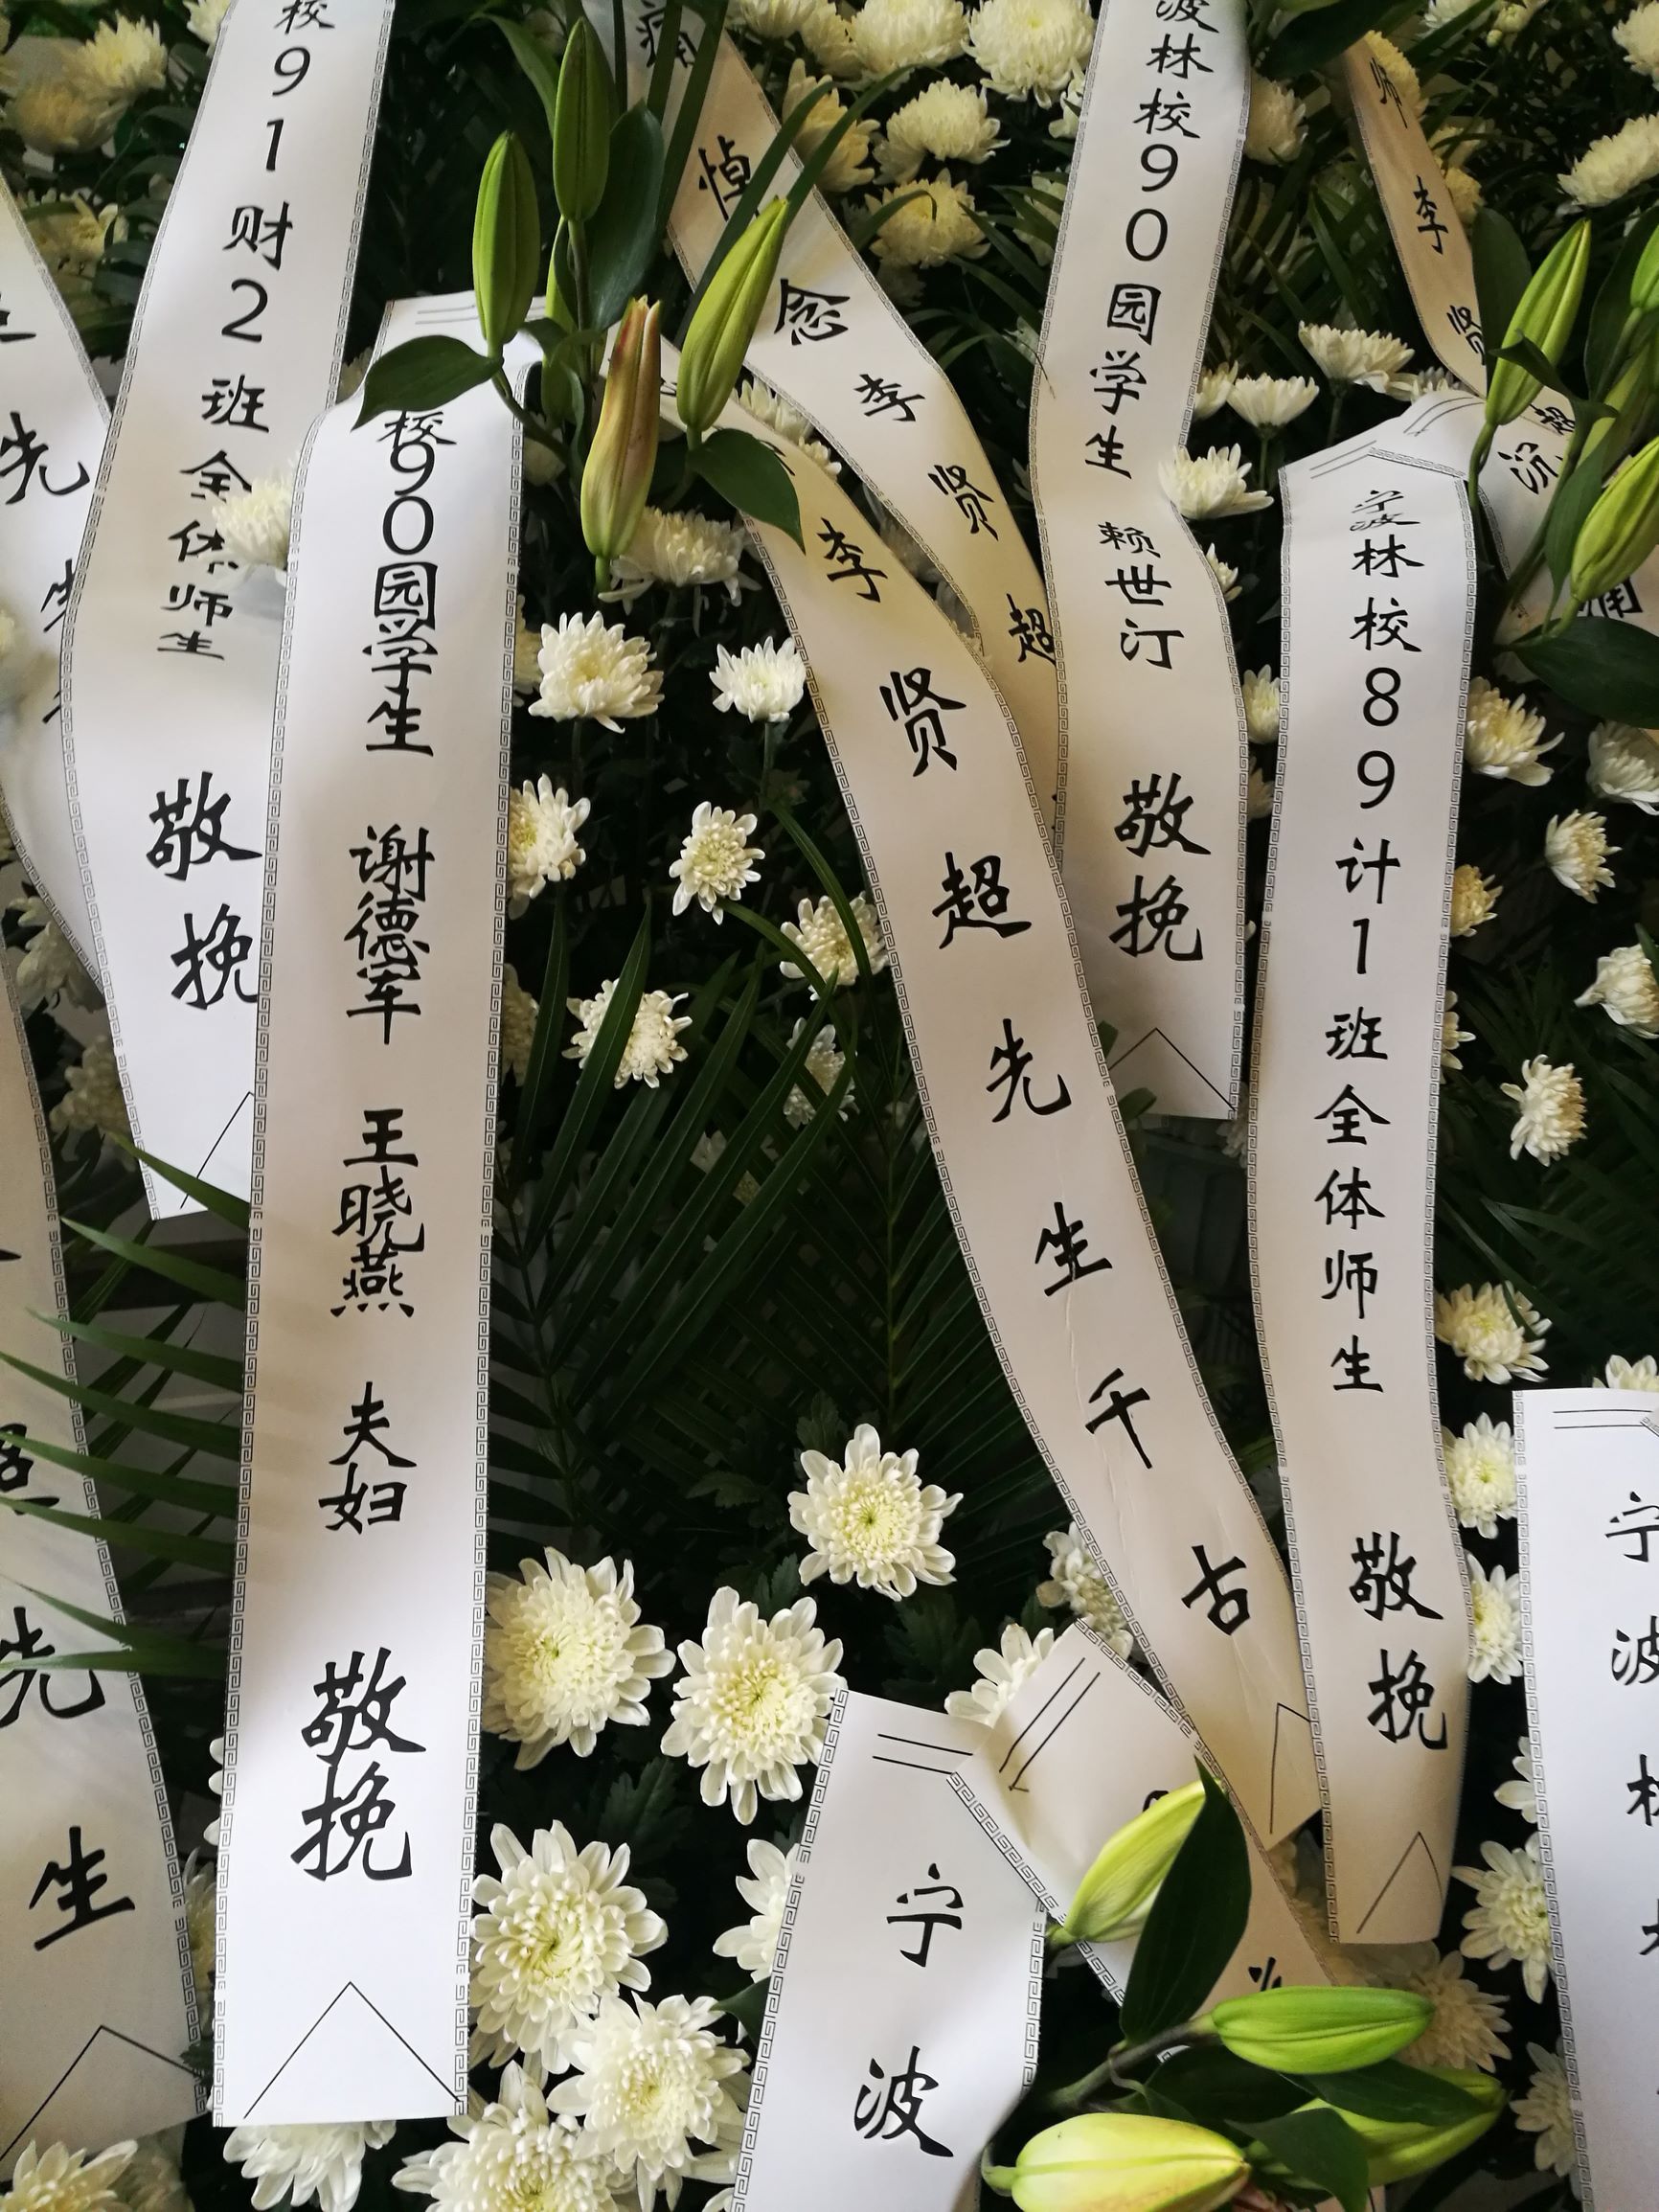 校91财2班全体师生 敬挽
校90园学生 谢德军 王晓燕 夫妇 敬挽
痛悼念李贤超
李贤超先生千古
波林校90园学生 赖世汀 敬挽
师李贤超
沉痛
宁波林校89计1班全体师生 敬挽
先生
先生
宁波
宁波